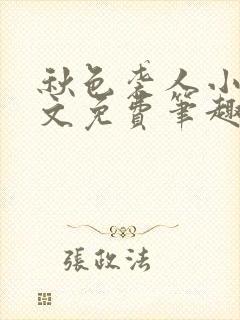 秋色袭人小
文免費筆趣
張政法